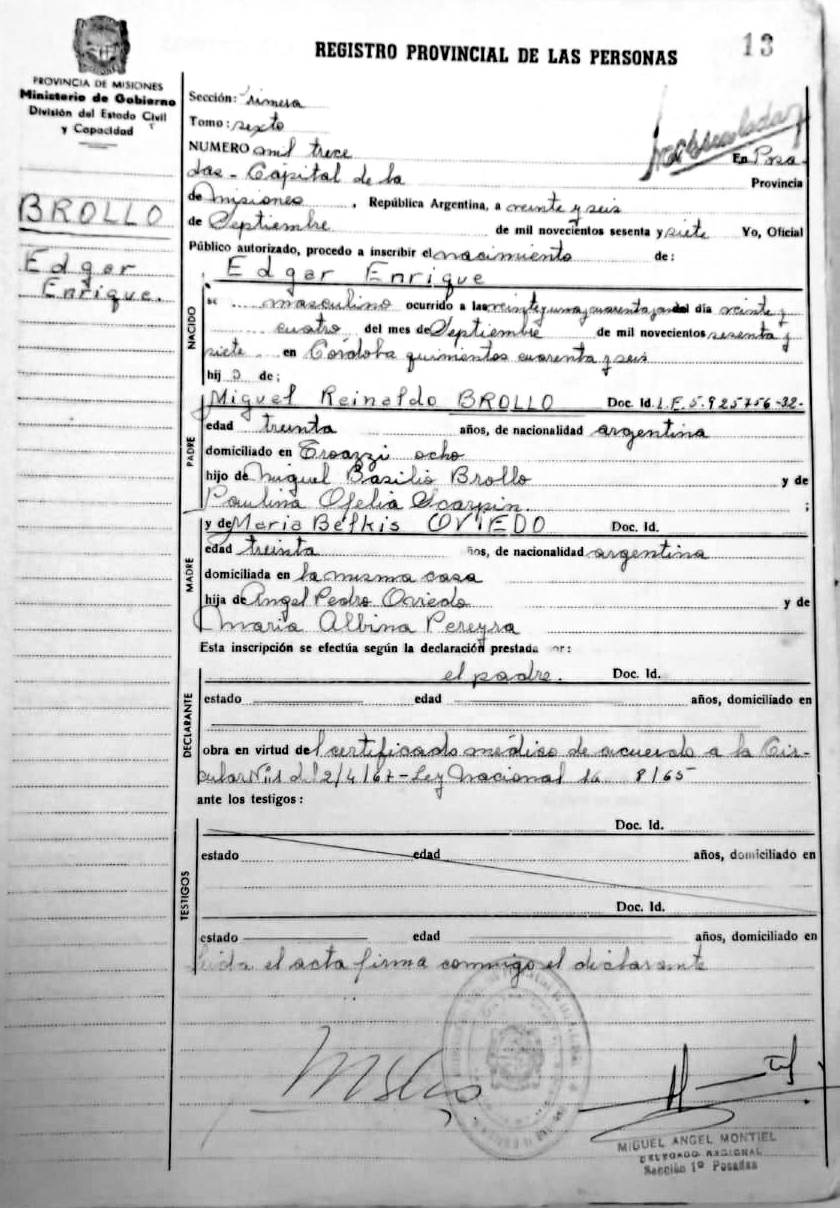 13
REGISTRO PROVINCIAL DE LAS PERSONAS
PROVINCIA DE MISIONES
Ministerio de Gobierno
División del Estado Civil
y Capacidad
BROLLO
Edgar
Enrique.
Sección: Primera
Tomo: sexto
NUMERO mil trece En Posa-
das - Capital de la Provincia
de Misiones, República Argentina, a veinte y seis
de Septiembre de mil novecientos sesenta y siete Yo, Oficial
Público autorizado, procedo a inscribir el nacimiento de:
Edgar Enrique
NACIDO
masculino ocurrido a las veinte y una y cuarenta del día veinte y
cuatro del mes de Septiembre de mil novecientos sesenta y
siete en Córdoba quinientos cuarenta y seis
hij o de:
PADRE
Miguel Reinaldo BROLLO Doc. Id. L.E. 5.925756-32-
edad treinta años, de nacionalidad argentina
domiciliado en ocho
hijo de Miguel Basilio Brollo y de
Paulina Ofelia Scarpin. ;
MADRE
y de Maria Belkis OVIEDO Doc. Id.
edad treinta años, de nacionalidad argentina
domiciliada en la misma casa
hija de Angel Pedro Oviedo y de
Maria Albina Pereyra
Esta inscripción se efectúa según la declaración prestada por:
DECLARANTE
el padre. Doc. Id.
estado edad años, domiciliado en
obra en virtud del certificado médico de acuerdo a la Cir-
cular Nº1 del 2/4/67 - Ley Nacional 16 8/65
ante los testigos:
TESTIGOS
Doc. Id.
estado edad años, domiciliado en
Doc. Id.
estado edad años, domiciliado en
Leida el acta firma conmigo el declarante
MIGUEL ANGEL MONTIEL
DELEGADO REGIONAL
Sección 1º Posadas